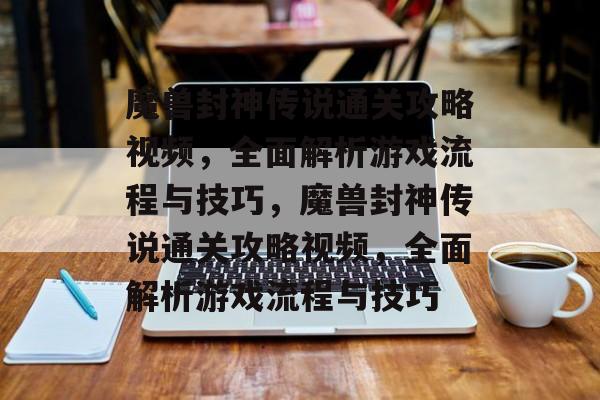 魔兽封神传说通关攻略
视频，全面解析游戏流
程与技巧，魔兽封神传
说通关攻略视频，全面
解析游戏流程与技巧